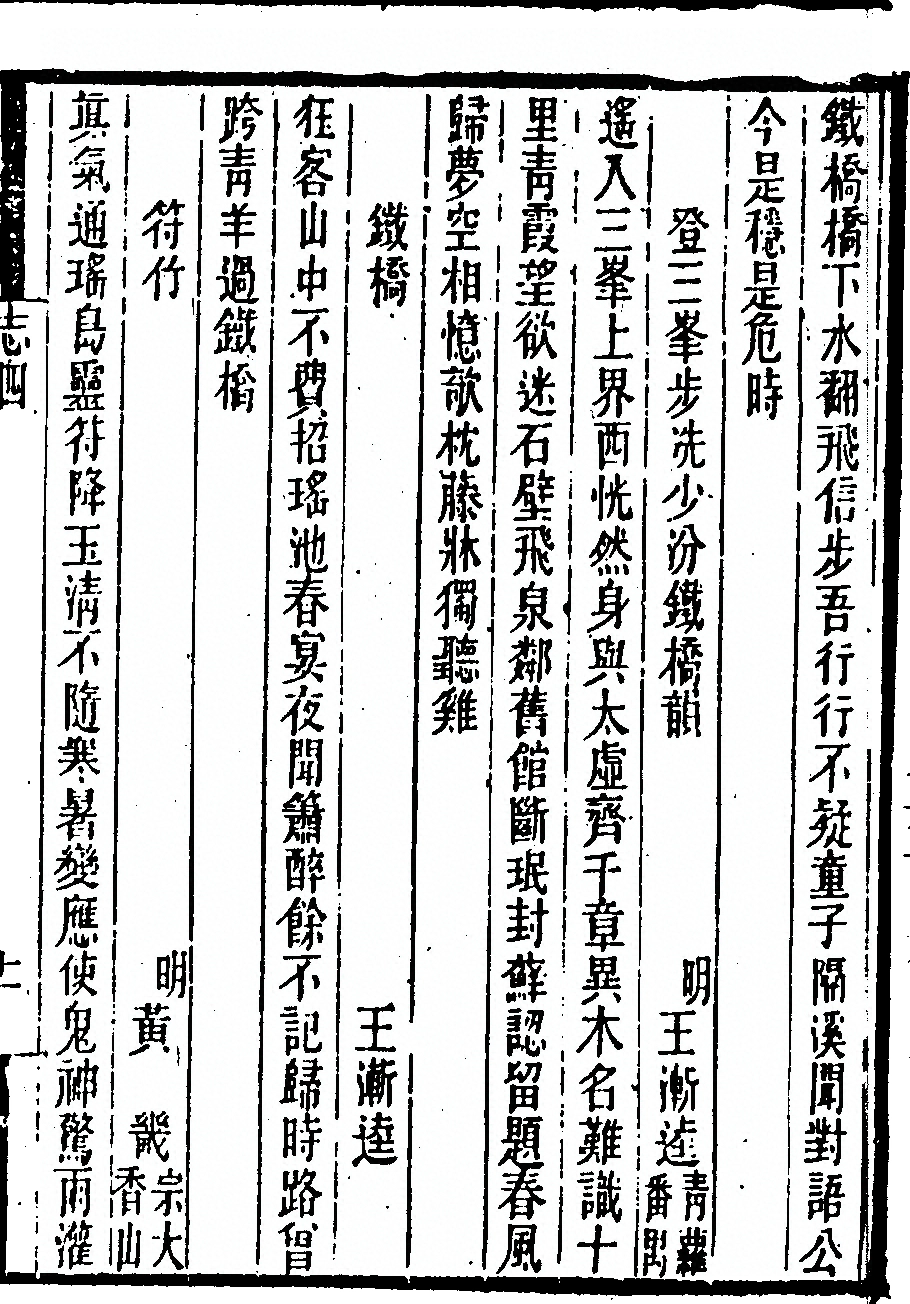 鐵橋橋下水翻飛信步吾行行不疑童子隔溪聞對語公
今是穩是危時
登三峯步冼少汾鐵橋韻 明王漸逵青蘿番禺
遙入三峯上界西恍然身與太虛齊千章異木名難識十
里青霞望欲迷石壁飛泉鄰舊館斷珉封蘚認留題春風
歸夢空相憶欹枕藤牀獨聽雞
鐵橋 王漸逵
狂客山中不費招瑤池春宴夜聞簫醉餘不記歸時路曾
跨青羊過鐵橋
符竹 明黃畿宗大香山
眞氣通瑤島靈符降玉清不隨寒暑變應使鬼神驚雨灌
志四